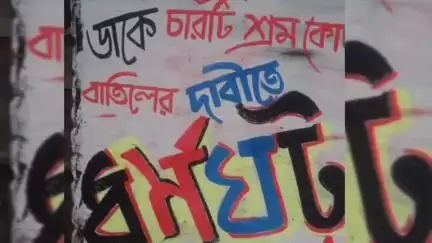 ডাকে চারটি শ্রম কো
বাতিলের দাবীতে
ধর্মঘট